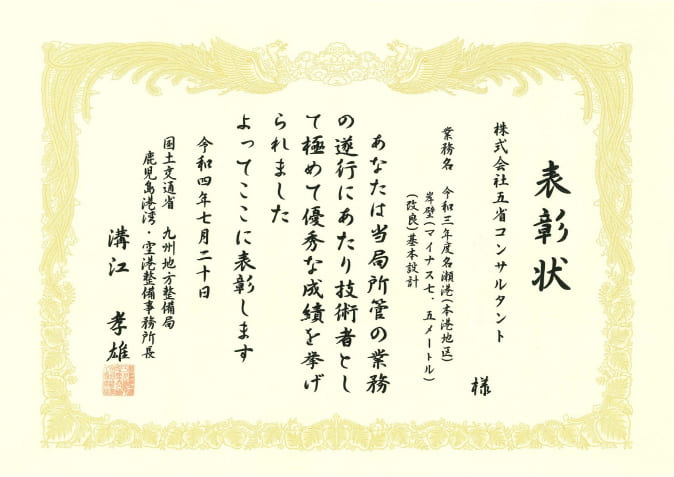 表彰状
株式会社五省コンサルタント
様
業務名 令和三年度名瀬港(本港地区)
岸壁(マイナス七.五メートル)
(改良)基本設計
あなたは当局所管の業務
の遂行にあたり技術者とし
て極めて優秀な成績を挙げ
られました
よってここに表彰します
令和四年七月二十日
国土交通省 九州地方整備局
鹿児島港湾・空港整備事務所長
溝江 孝雄